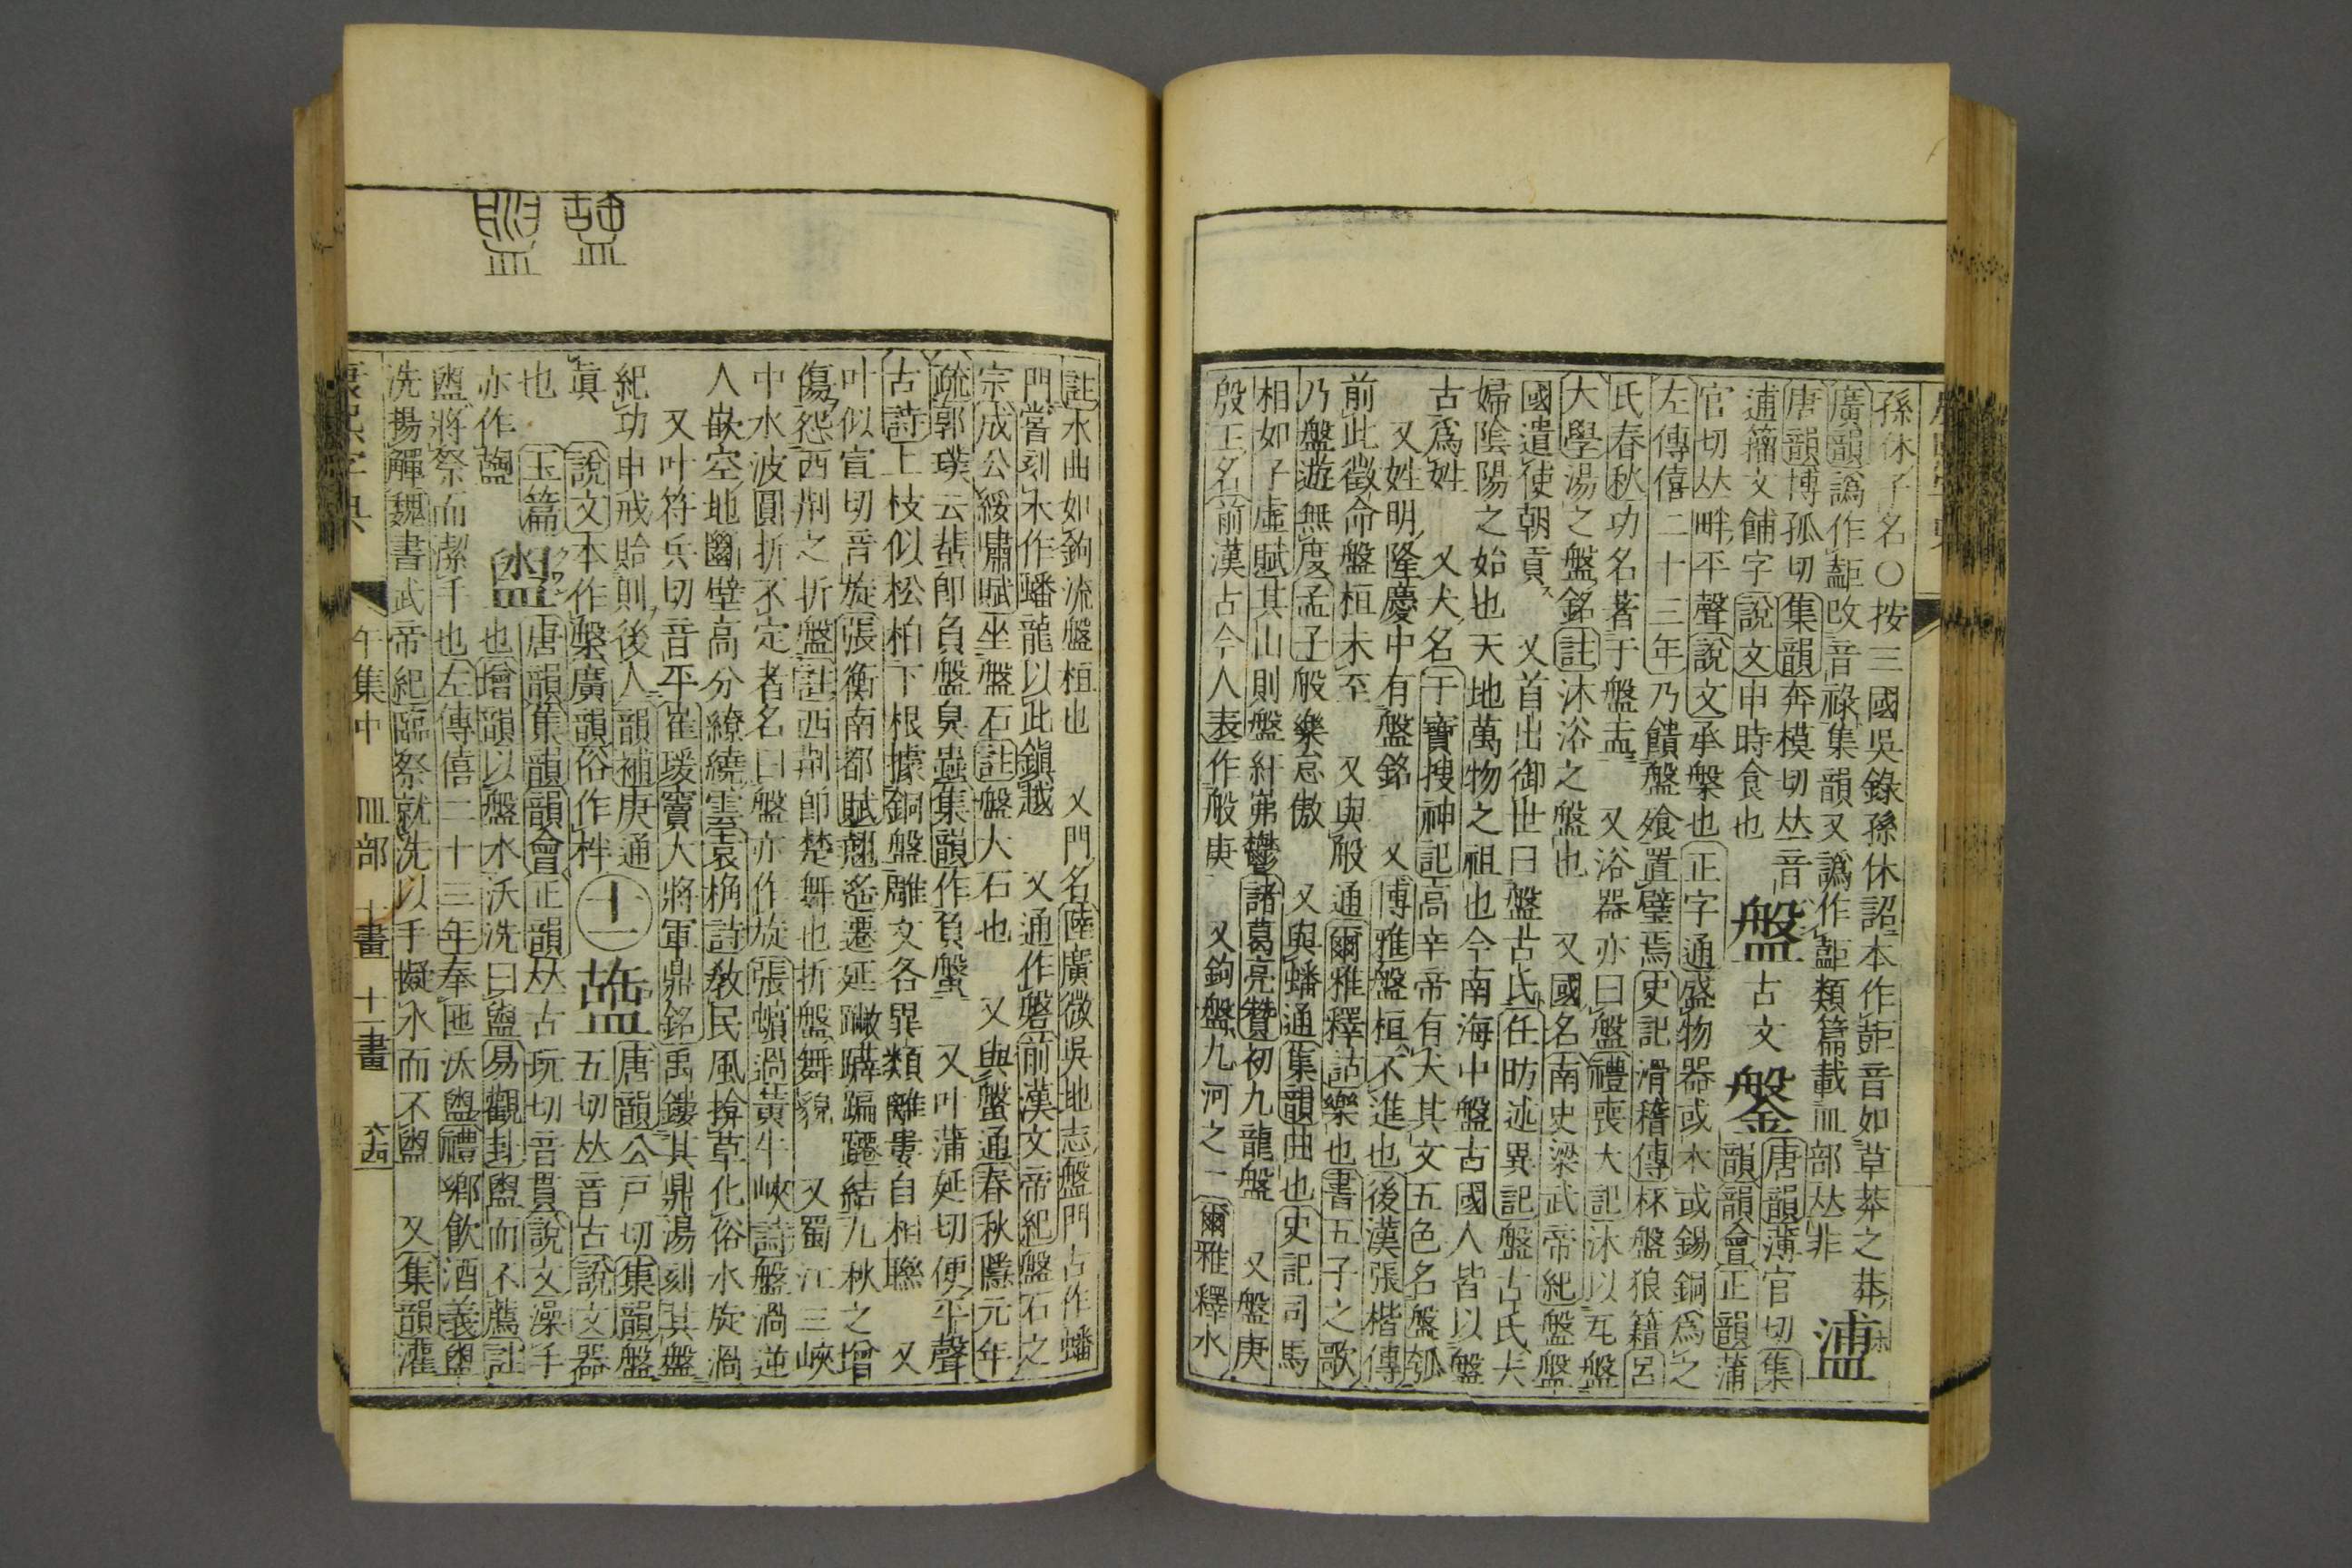 孫休子名○按三國吳錄孫休詔本作䶥音如草莽之莽 𥂈
廣韻譌作䶥改音祿集韻又譌作䶥類篇載皿部𠀤非
唐韻博孤切集韻奔模切𠀤音逋籀文餔字說文申時食也 盤 古文 鎜 唐韻薄官切集韻韻會正韻蒲
官切𠀤畔平聲說文承槃也正字通盛物器或木或錫銅爲之
左傳僖二十三年乃饋盤飧置璧焉史記滑稽傳杯盤狼籍呂
氏春秋功名著于盤盂 又浴器亦曰盤禮喪大記沐以瓦盤
大學湯之盤銘註沐浴之盤也 又國名南史梁武帝紀盤盤
國遣使朝貢 又首出御世曰盤古氏任昉述異記盤古氏夫
婦陰陽之始也天地萬物之祖也今南海中盤古國人皆以盤
古爲姓 又犬名干寶搜神記高辛帝有犬其文五色名盤瓠
又姓明隆慶中有盤銘 又博雅盤桓不進也後漢張楷傳
前此徵命盤桓未至 又與般通爾雅釋詁樂也書五子之歌
乃盤遊無度孟子般樂怠傲 又與蟠通集韻曲也史記司馬
相如子虛賦其山則盤紆岪鬱諸葛亮贊初九龍盤 又盤庚
殷王名前漢古今人表作般庚 又鉤盤九河之一爾雅釋水
註水曲如鉤流盤桓也 又門名陸廣微吳地志盤門古作蟠
門嘗刻木作蟠龍以此鎭越 又通作磐前漢文帝紀盤石之
宗成公綏嘯賦坐盤石註盤大石也 又與蟹通春秋隱元年
疏郭璞云蜚卽負盤臭蟲集韻作負蟹 又叶蒲延切便平聲
古詩上枝似松柏下根據銅盤雕文各異類離婁自相聯 又
叶似宣切音旋張衡南都賦翹遙遷延𨇨𨇾蹁躚結九秋之增
傷怨西荆之折盤註西荆卽楚舞也折盤舞貌 又蜀江三峽
中水波圓折不定者名曰盤亦作旋張蠙過黃牛峽詩盤渦逆
人嵌空地幽壁高分繚繞雲袁桷詩敎民風揜草化俗水旋渦
又叶符兵切音平崔瑗竇大將軍鼎銘禹鏤其鼎湯刻其盤
紀功申戒貽則後人韻補庚通
眞 說文本作槃廣韻俗作柈 十一 䀇 五切𠀤音古說文器
也 玉篇 唐韻公戶切集韻韻會
亦作盬 盥 唐韻集韻韻會正韻𠀤古玩切音貫說文澡手
也增韻以盤水沃洗曰盥易觀卦盥而不薦註
盥將祭而潔手也左傳僖二十三年奉匜沃盥禮鄉飮酒義盥
洗揚觶魏書武帝紀臨祭就洗以手擬水而不盥 又集韻灌
康熙字典 午集中 皿部 十畫 十一畫 六十四